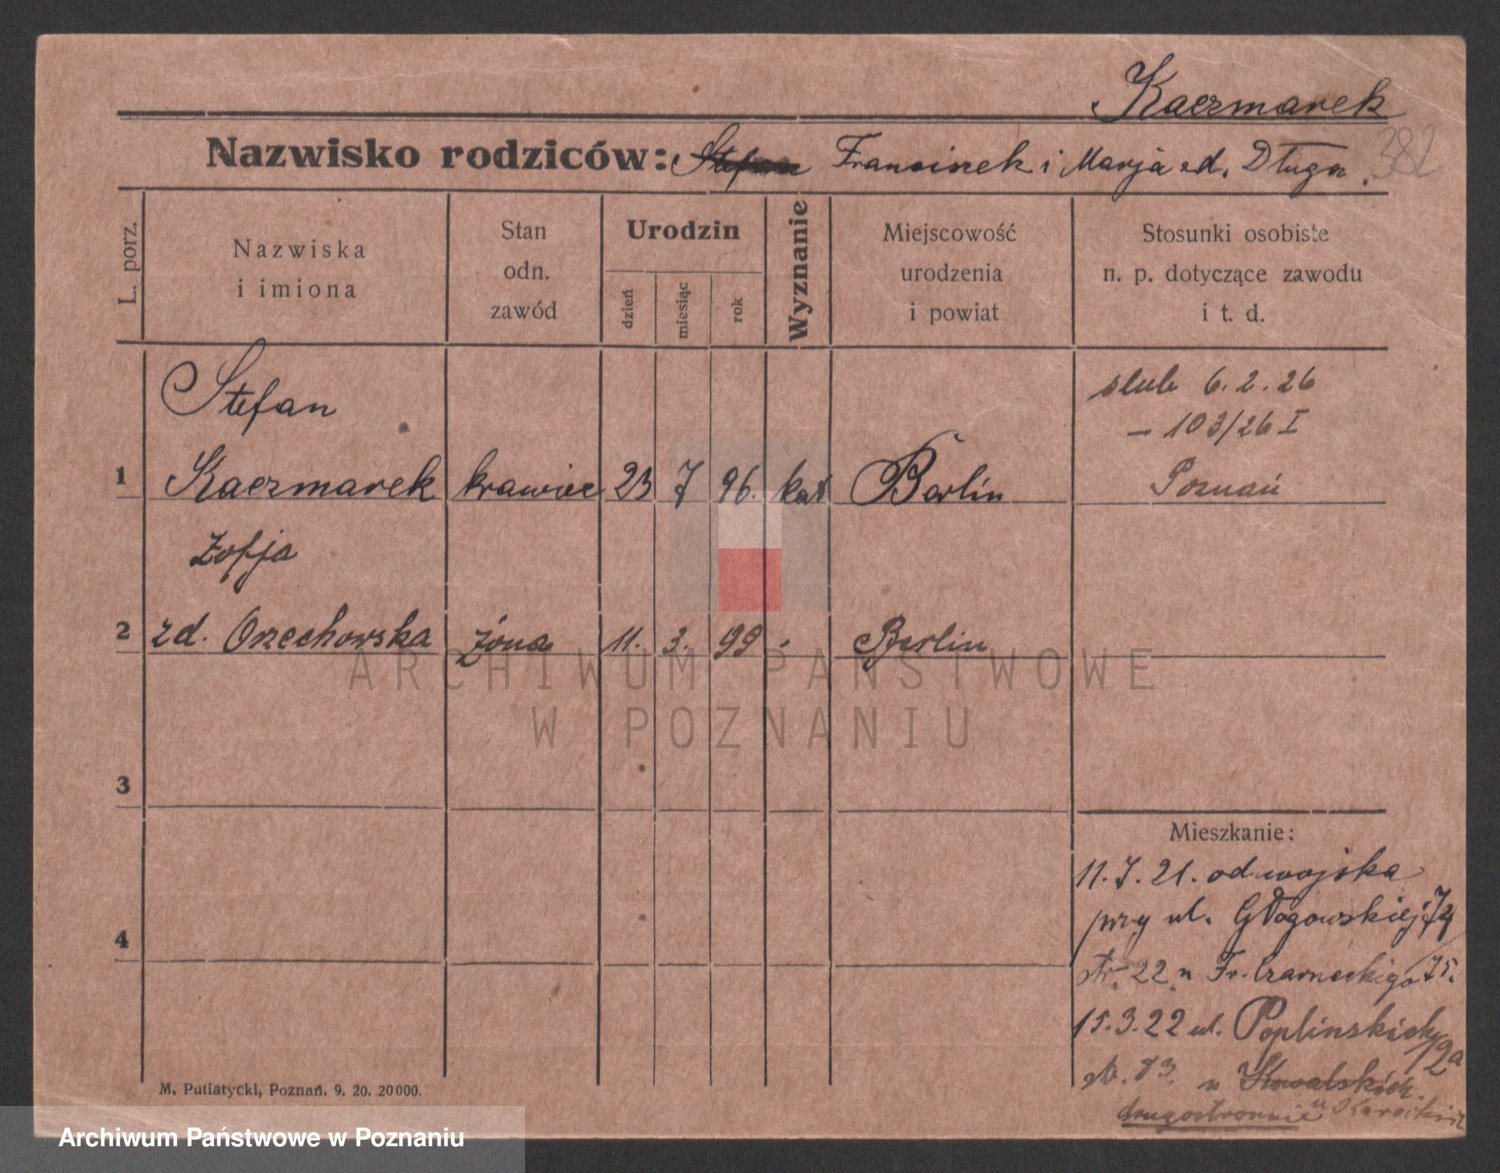 Kaczmarek
382
Nazwisko rodziców: Stefan Franciszek i Marja zd. Długa.
L. porz.
Nazwiska
i imiona
Stan
odn.
zawód
Urodzin
dzień
miesiąc
rok
Wyznanie
Miejscowość
urodzenia
i powiat
Stosunki osobiste
n. p. dotyczące zawodu
i t. d.
Stefan
1 Kaczmarek krawiec 23 7 96. kat Berlin
ślub 6.2.26
– 103/26 I
Poznań
Zofja
2 zd. Orzechowska żona 11. 3. 99 Berlin
3
4
Mieszkanie:
11.7.21. od wojska
przy ul. Głogowskiej 74/
str. 22 u Fr. Czarneckiego 75.
15.3.22 ul. Poplinskich
12a
u Kowalskich
drugostronnie u
M. Putiatycki, Poznań. 9. 20. 20000.
ARCHIWUM PAŃSTWOWE
W POZNANIU
Archiwum Państwowe w Poznaniu